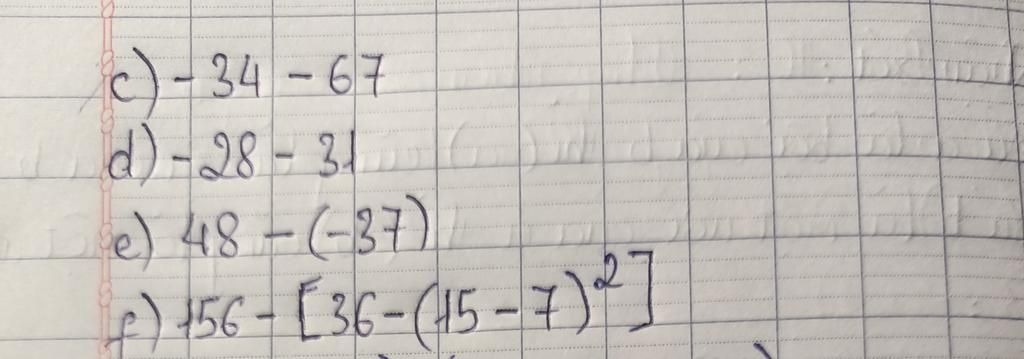 c) - 34 - 67
d) - 28 - 31
e) 48 - (-37)
f) 156 - [36 - (15 - 7)²]